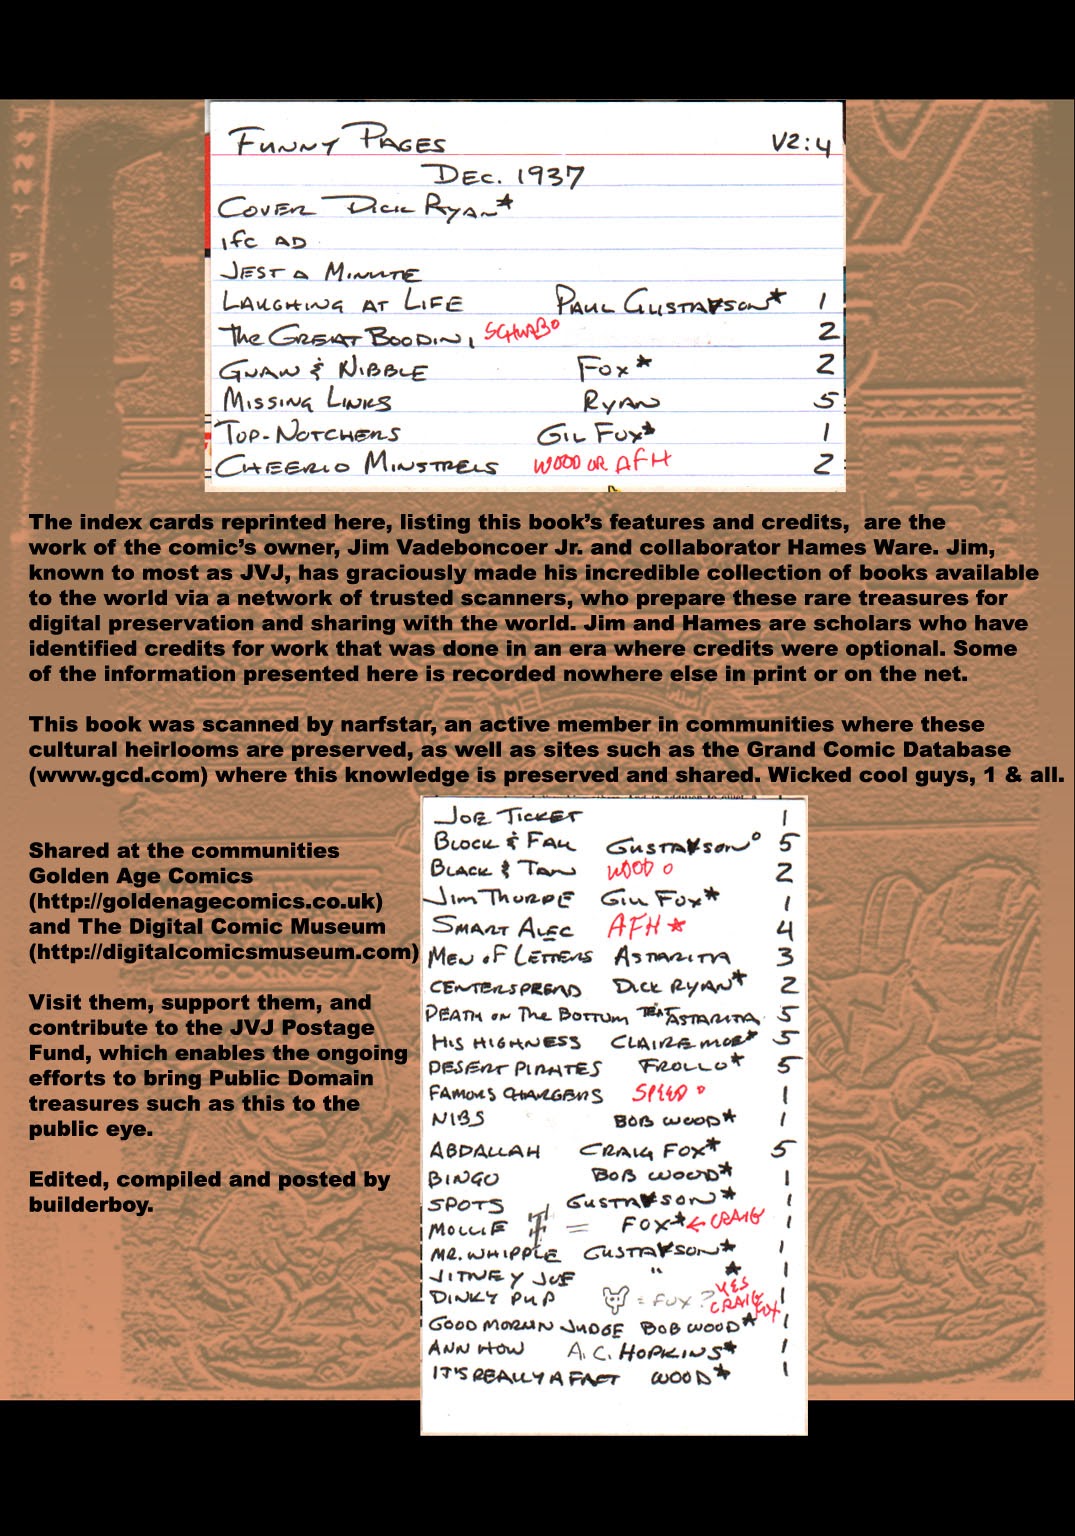 FUNNY PAGES V2:4
DEC. 1937
COVER DICK RYAN*
ifc AD
JEST A MINUTE
LAUGHING AT LIFE PAUL GUSTAVSON* 1
The GREAT BOODINI SCHWAB° 2
GNAW & NIBBLE FOX* 2
MISSING LINKS RYAN 5
TOP-NOTCHERS GIL FOX* 1
CHEERIO MINSTRELS WOOD OR AFH 2
The index cards reprinted here, listing this book's features and credits, are the
work of the comic's owner, Jim Vadeboncoer Jr. and collaborator Hames Ware. Jim,
known to most as JVJ, has graciously made his incredible collection of books available
to the world via a network of trusted scanners, who prepare these rare treasures for
digital preservation and sharing with the world. Jim and Hames are scholars who have
identified credits for work that was done in an era where credits were optional. Some
of the information presented here is recorded nowhere else in print or on the net.
This book was scanned by narfstar, an active member in communities where these
cultural heirlooms are preserved, as well as sites such as the Grand Comic Database
(www.gcd.com) where this knowledge is preserved and shared. Wicked cool guys, 1 & all.
Shared at the communities
Golden Age Comics
(http://goldenagecomics.co.uk)
and The Digital Comic Museum
(http://digitalcomicsmuseum.com)
Visit them, support them, and
contribute to the JVJ Postage
Fund, which enables the ongoing
efforts to bring Public Domain
treasures such as this to the
public eye.
Edited, compiled and posted by
builderboy.
JOE TICKET 1
BLOCK & FALL GUSTAVSON° 5
BLACK & TAN WOOD ° 2
JIM THORPE GILL FOX* 1
SMART ALEC AFH * 4
MEN OF LETTERS ASTARITA 3
CENTERSPREAD DICK RYAN* 2
DEATH ON THE BOTTOM TEXT ASTARITA 5
HIS HIGHNESS CLAIRE MOE* 5
DESERT PIRATES FROLLO* 5
FAMOUS CHARGERS SPEED ° 1
NIBS BOB WOOD* 1
ABDALLAH CRAIG FOX* 5
BINGO BOB WOOD* 1
SPOTS GUSTAVSON* 1
MOLLIE = FOX* ← CRAIG 1
MR. WHIPPLE GUSTAVSON* 1
JITNEY JOE " * 1
DINKY PUP = FOX? YES CRAIG FOX 1
GOOD MORNIN JUDGE BOB WOOD* 1
ANN HOW A.C. HOPKINS* 1
IT'S REALLY A FACT WOOD* 1